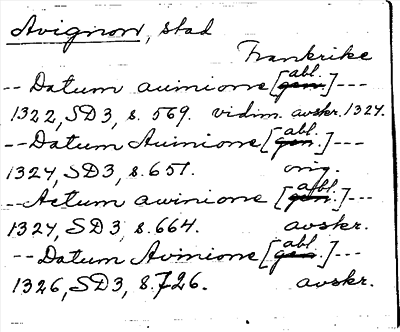 Avignon, stad
Frankrike
-- Datum auinione [gen. abl.] ---
1322, SD3, s. 569. vidim. avskr. 1324.
-- Datum Auinione [gen. abl.] ---
1324, SD3, s. 651. orig.
-- Actum awinione [gen. abl.] ---
1324, SD3, s. 664. avskr.
-- Datum Avinione [gen. abl.] ---
1326, SD3, s. 726. avskr.